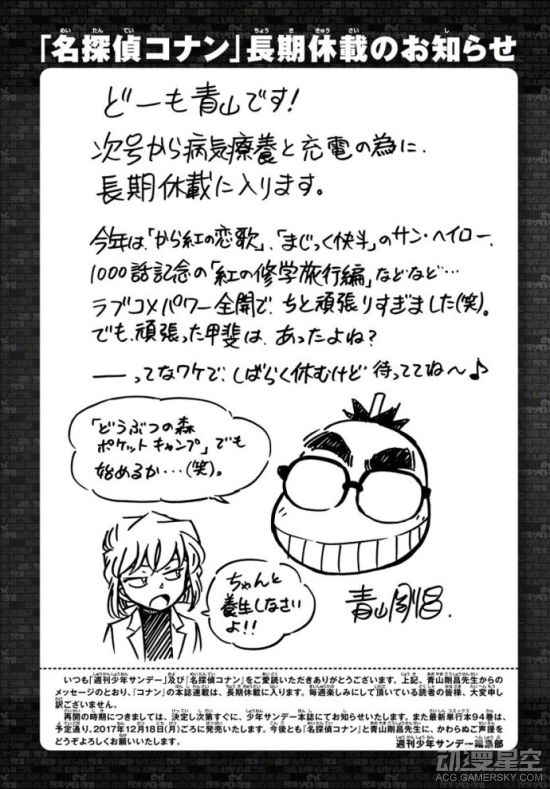 「名探偵コナン」長期休載のお知らせ
どーも青山です!
次号から病気療養と充電の為に、
長期休載に入ります。
今年は、「から紅の恋歌」、「まじっく快斗」のサン・ヘイロー、
1000話記念の「紅の修学旅行編」などなど…
ラブコメパワー全開で、ちと頑張りすぎました(笑)。
でも、頑張った甲斐は、あったよね?
——ってなワケで、しばらく休むけど 待っててね〜♪
「どうぶつの森
ポケットキャンプ」でも
始めるか…(笑)。
ちゃんと
養生しなさい
よ!!
青山剛昌.
いつも「週刊少年サンデー」及び「名探偵コナン」をご愛読いただきありがとうございます。上記、青山剛昌先生からの
メッセージのとおり、『コナン』の本誌連載は、長期休載に入ります。毎週楽しみにして頂いている読者の皆様、大変申し
訳ございません。
再開の時期につきましては、決定し次第すぐに、少年サンデー本誌にてお知らせいたします。また最新単行本94巻は、
予定通り、2017年12月18日(月)ごろに発売いたします。今後とも『名探偵コナン』と青山剛昌先生に、かわらぬご声援を
どうぞよろしくお願いいたします。
週刊少年サンデー編集部
动漫星空
ACG.GAMERSKY.COM